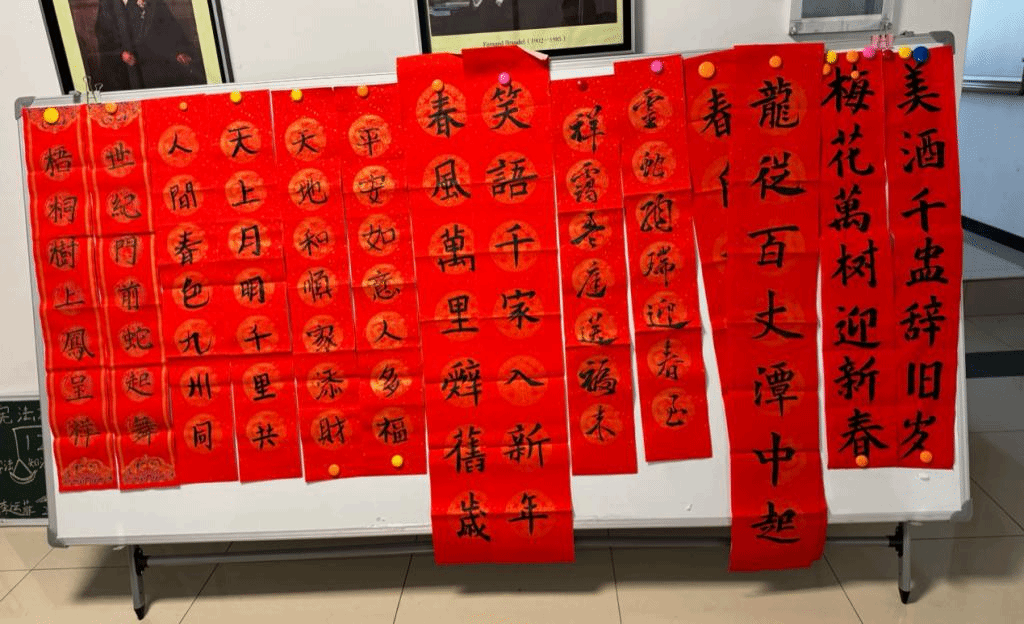 Fernand Braudel（1902－1985）
美酒千盅辞旧岁
梅花萬树迎新春
龍從百丈潭中起
春
靈蛇絢瑞迎春至
祥靄盈庭送福来
笑語千家入新年
春風萬里辭舊歲
平安如意人多福
天地和順家添財
天上月明千里共
人間春色九州同
世紀門前蛇起舞
梧桐樹上鳳呈祥